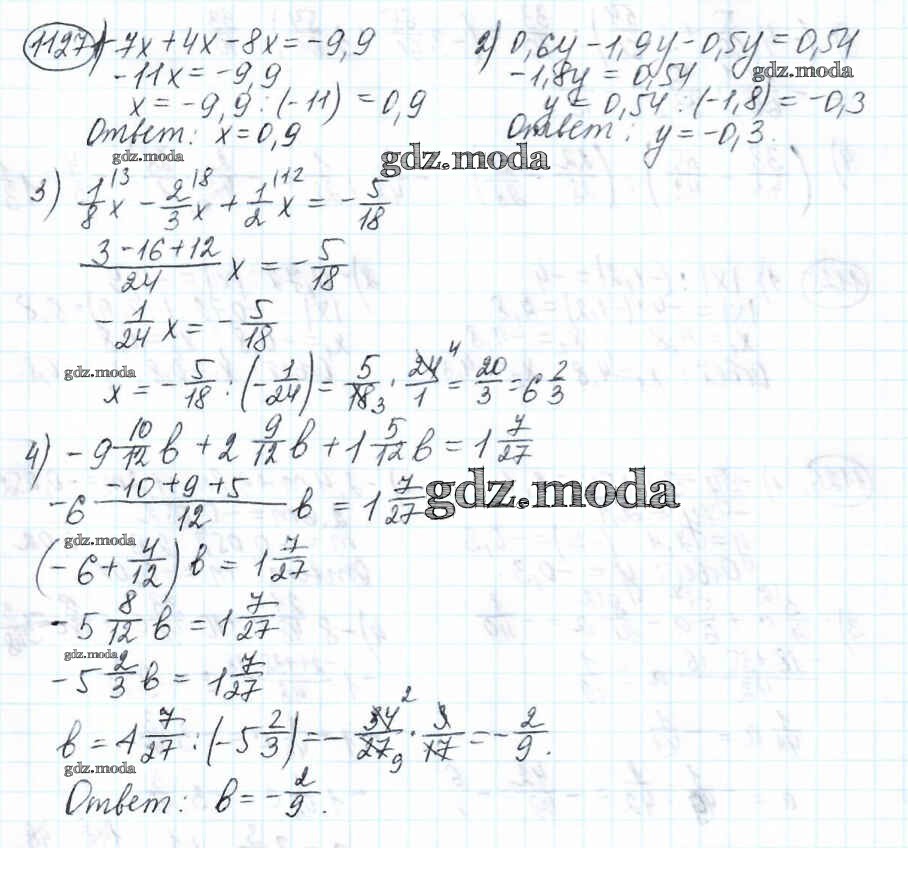 1127 1) -7x + 4x - 8x = -9,9
-11x = -9,9
x = -9,9 : (-11) = 0,9
Ответ: x = 0,9
gdz.moda
2) 0,6y - 1,9y - 0,5y = 0,54
-1,8y = 0,54
gdz.moda
y = 0,54 : (-1,8) = -0,3
Ответ: y = -0,3.
gdz.moda
3) 1/8 x |3 - 2/3 x |8 + 1/2 x |12 = - 5/18
(3 - 16 + 12)/24 x = - 5/18
- 1/24 x = - 5/18
gdz.moda
x = - 5/18 : (- 1/24) = 5/18 3 · 24/1 4 = 20/3 = 6 2/3
4) -9 10/12 b + 2 9/12 b + 1 5/12 b = 1 7/27
-6 (-10 + 9 + 5)/12 b = 1 7/27
gdz.moda
gdz.moda
(-6 + 4/12) b = 1 7/27
-5 8/12 b = 1 7/27
gdz.moda
-5 2/3 b = 1 7/27
b = 1 7/27 : (-5 2/3) = - 34/27 2 9 · 3/17 = - 2/9.
gdz.moda
Ответ: b = - 2/9.